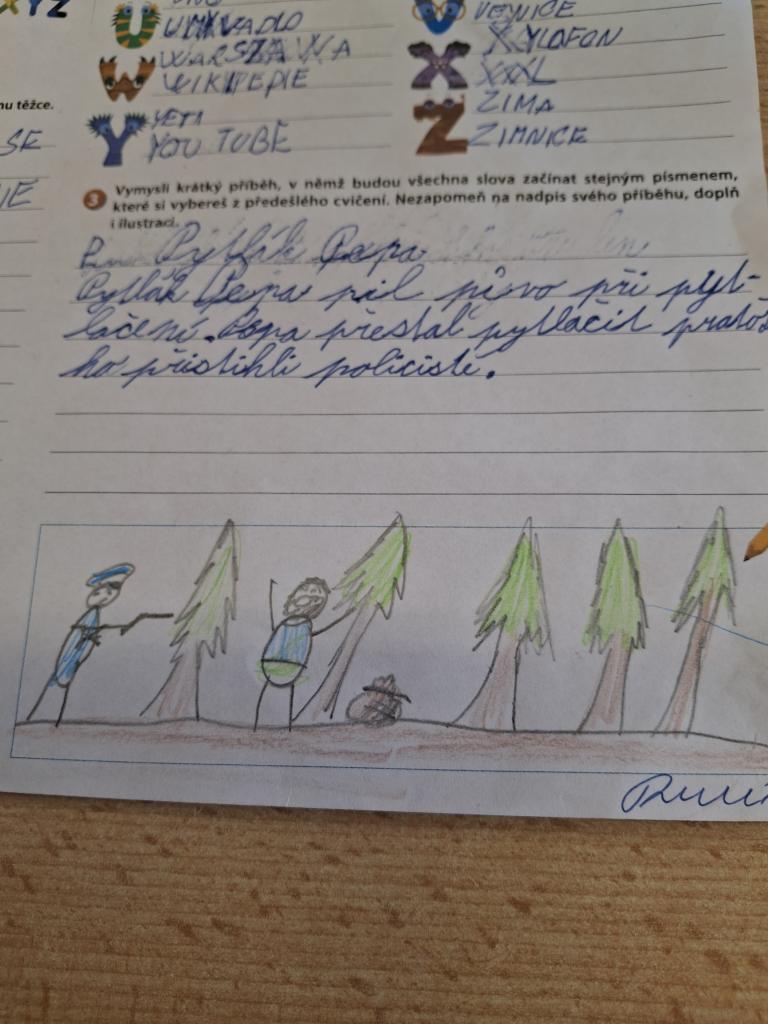 XYZ
UMYVADLO
VĚJNICE
WARSZAWA
XYLOFON
WIKIPEDIE
XXL
YETI
ZIMA
YOU TUBE
ZIMNICE
nu těžce.
SE
3 Vymysli krátký příběh, v němž budou všechna slova začínat stejným písmenem,
které si vybereš z předešlého cvičení. Nezapomeň na nadpis svého příběhu, doplň
i ilustraci.
Pytlák Pepa
Pytlák Pepa pil pivo při pyt-
lačení. Pepa přestal pytlačit protož
ho přistihli policisté.